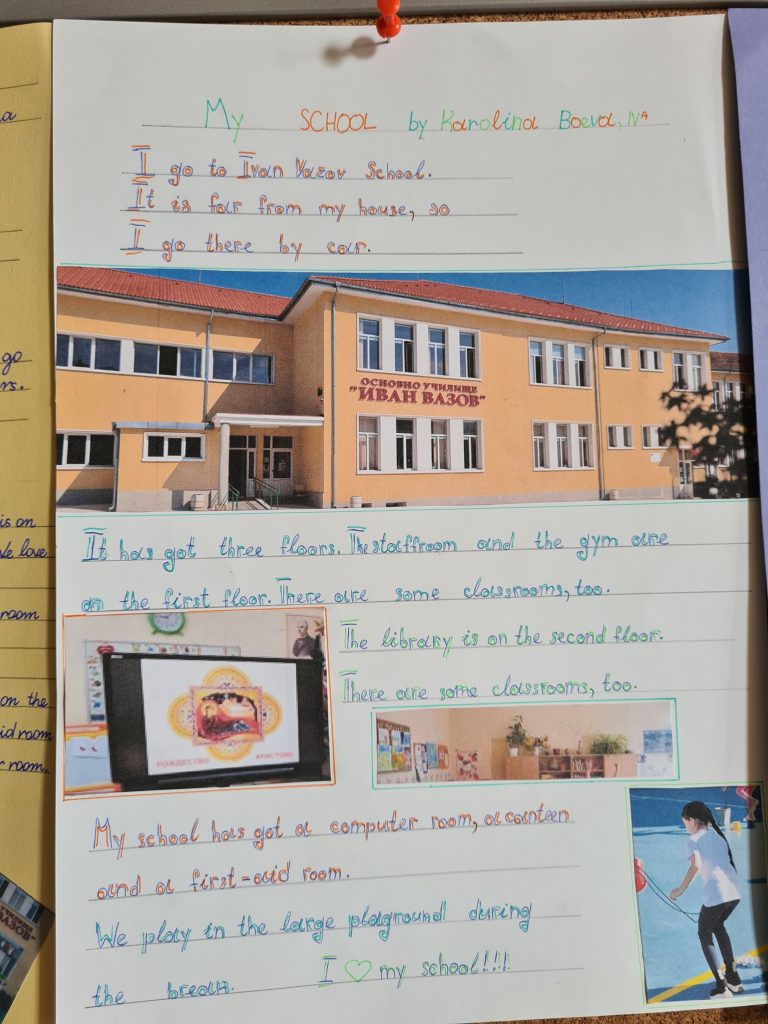 My SCHOOL by Karolina Boeva, IVA
I go to Ivan Vazov School.
It is far from my house, so
I go there by car.
ОСНОВНО УЧИЛИЩЕ
"ИВАН ВАЗОВ"
It has got three floors. The staffroom and the gym are
on the first floor. There are some classrooms, too.
The library is on the second floor.
There are some classrooms, too.
РОЖДЕСТВО ХРИСТОВО
My school has got a computer room, a canteen
and a first-aid room.
We play in the large playground during
the break. I ♡ my school!!!!
a
go
rs.
is on
We love
room
on the
id room
room.
ВАЗОВ"